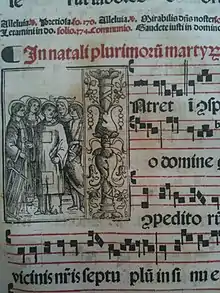 Alleluia. ℣. Preciosa fo. 170. Alleluia. ℣. Mirabilis dn̄s noster
folio. 174. Communio. Gaudete iusti in domino
In natali plurimorū martyr
Ntret i ɔsp
o domine g
ꝯpedito rū
vicinis nr̄is septu plū in si nu e